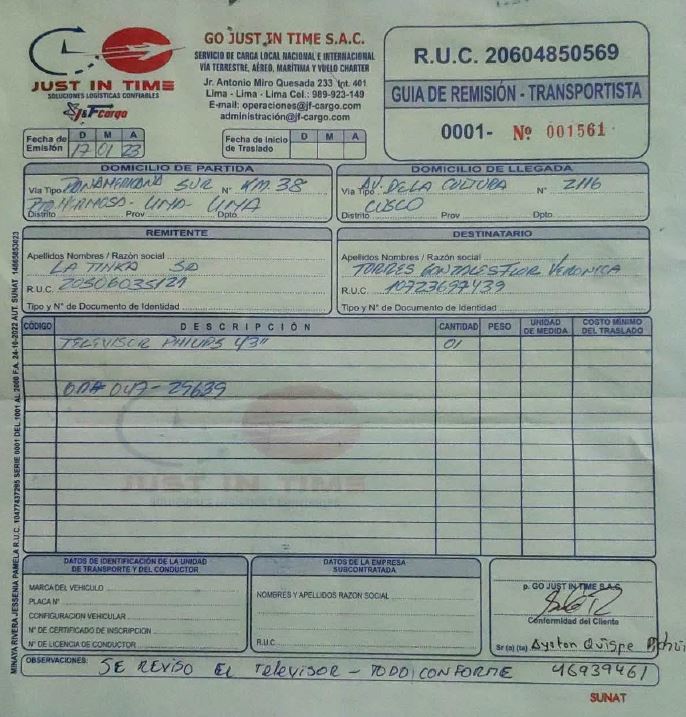 JUST IN TIME
SOLUCIONES LOGÍSTICAS CONFIABLES
J&F cargo
GO JUST IN TIME S.A.C.
SERVICIO DE CARGA LOCAL NACIONAL E INTERNACIONAL
VÍA TERRESTRE, AÉREO, MARÍTIMA Y VUELO CHARTER
Jr. Antonio Miro Quesada 233 Int. 401
Lima - Lima - Lima Cel.: 989-923-149
E-mail: operaciones@jf-cargo.com
administración@jf-cargo.com
R.U.C. 20604850569
GUIA DE REMISIÓN - TRANSPORTISTA
0001- Nº 001561
Fecha de Emisión D M A
17 01 23
Fecha de Inicio de Traslado D M A
DOMICILIO DE PARTIDA
Via Tipo PANAMERICANA SUR N° KM. 38
PTO HERMOSA - LIMA - LIMA
Distrito Prov Dpto
DOMICILIO DE LLEGADA
Via Tipo AV. DE LA CULTURA N° 2116
CUSCO
Distrito Prov Dpto
REMITENTE
Apellidos Nombres / Razón social
LA TINKA SA
R.U.C. 20506035121
Tipo y N° de Documento de Identidad
DESTINATARIO
Apellidos Nombres / Razón social
TORRES GONZALES FLOR VERONICA
R.U.C. 10723697439
Tipo y N° de Documento de Identidad
CÓDIGO DESCRIPCIÓN CANTIDAD PESO UNIDAD DE MEDIDA COSTO MÍNIMO DEL TRASLADO
TELEVISOR PHILIPS 43" 01
047-29639
JUST IN TIME
DATOS DE IDENTIFICACIÓN DE LA UNIDAD DE TRANSPORTE Y DEL CONDUCTOR
MARCA DEL VEHICULO
PLACA N°
CONFIGURACION VEHICULAR
N° DE CERTIFICADO DE INSCRIPCION
N° DE LICENCIA DE CONDUCTOR
DATOS DE LA EMPRESA SUBCONTRATADA
NOMBRES Y APELLIDOS RAZON SOCIAL
R.U.C
p. GO JUST IN TIME S.A.C.
Conformidad del Cliente
Sr (a) (ta) Ayrton Quispe
OBSERVACIONES: SE REVISO EL Televisor - TODO CONFORME 46939461
SUNAT
MINAYA RIVERA JESSENIA PAMELA R.U.C. 10477437295 SERIE 0001 DEL 1001 AL 2000 F.A. 24-10-2022 AUT. SUNAT 14665853023